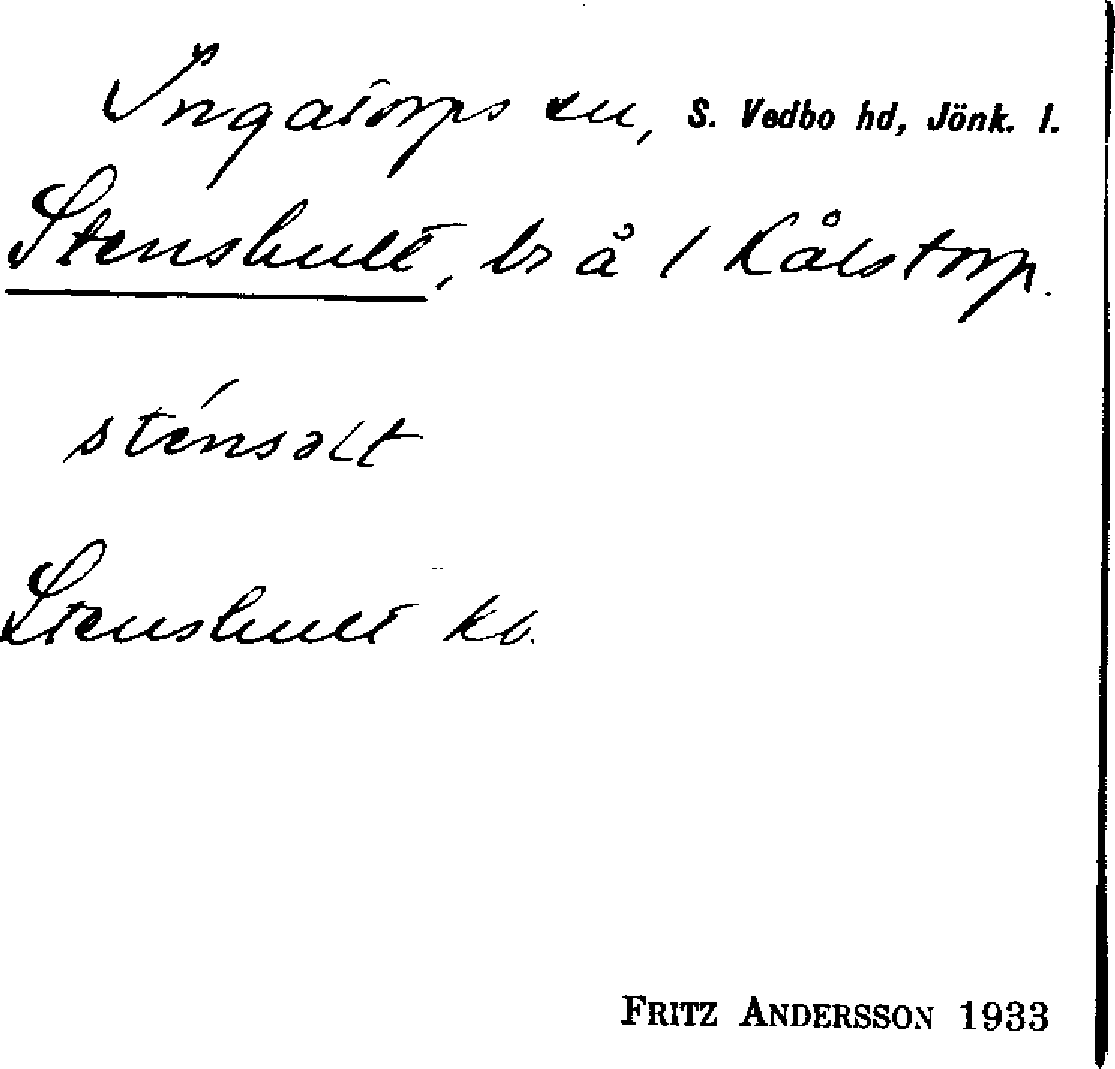 Ingatorps sn, S. Vedbo hd, Jönk. l.
Stenshult, br å 1 Kålstorp.
sténsalt
Stenshult kb.
FRITZ ANDERSSON 1933